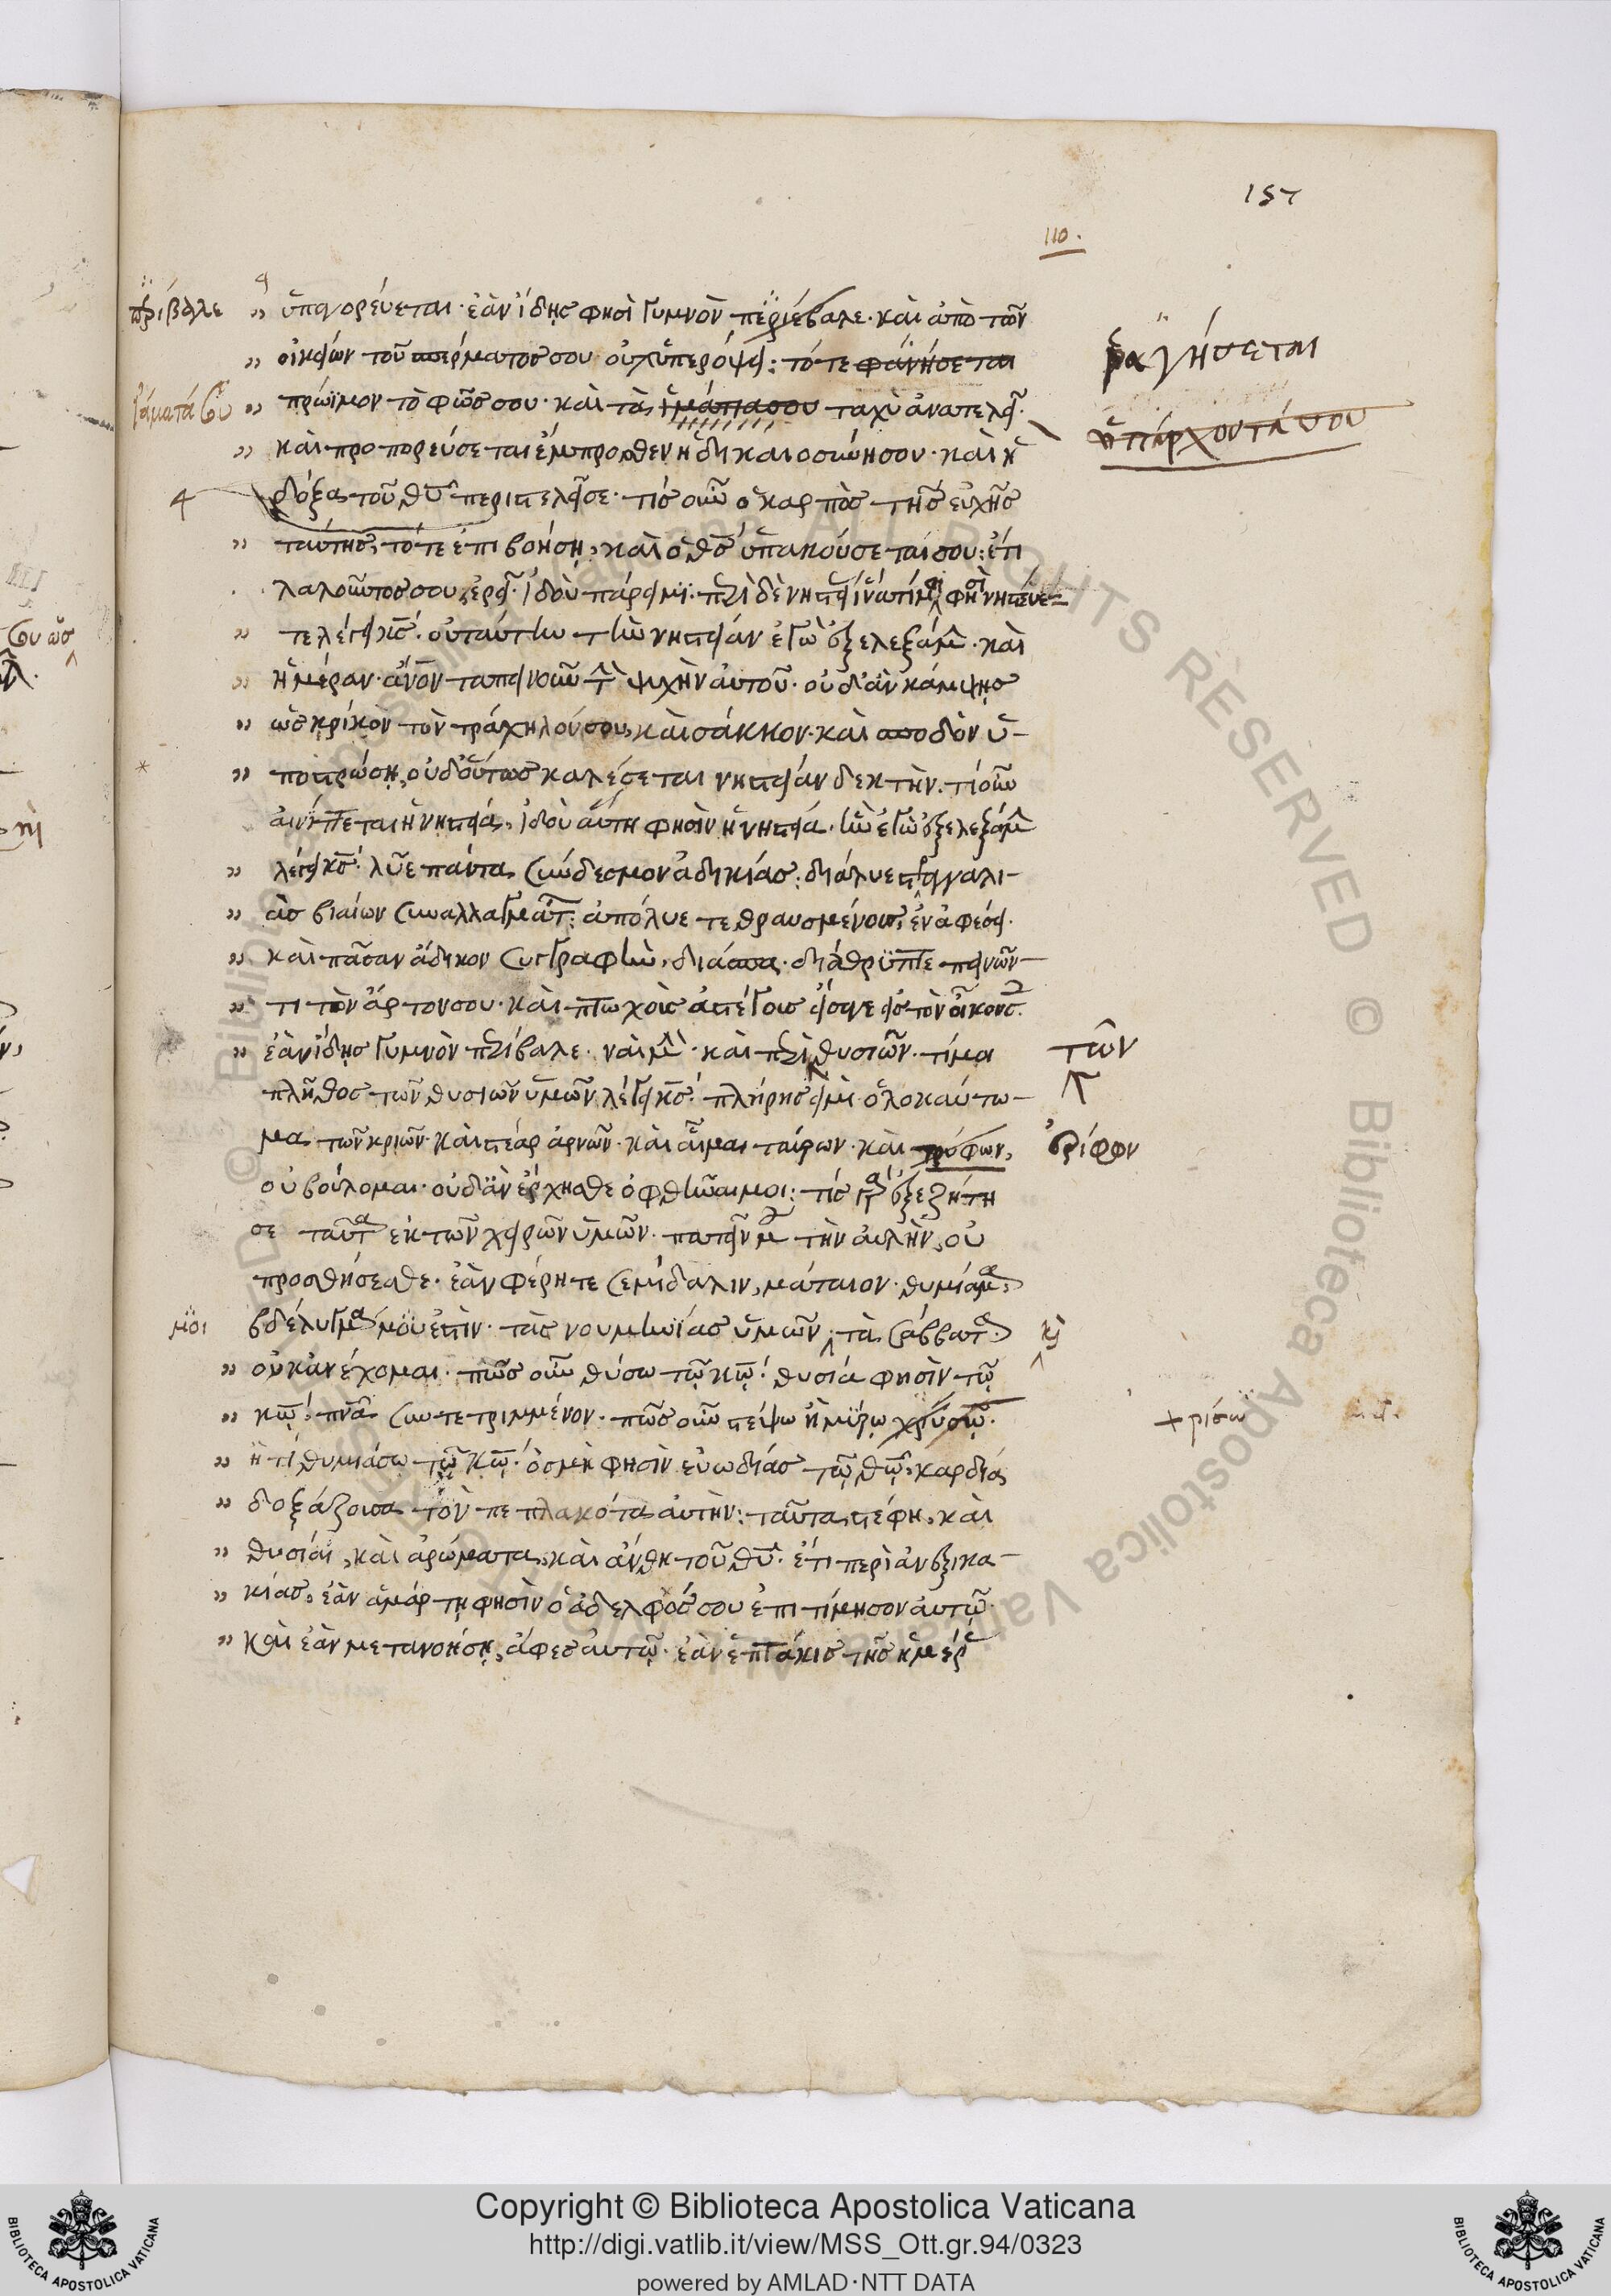 157
110.
περίβαλε
ὑπαγορεύεται· ἐὰν ἴδῃς φησὶ γυμνὸν περιέβαλε· καὶ ἀπὸ τῶν
οἰκείων τοῦ σπέρματός σου οὐχ ὑπερόψει: τότε φανήσεται
ῥαγήσεται
ἰάματά σου
πρώϊμον τὸ φῶς σου· καὶ τὰ ἱμάτιά σου ταχὺ ἀνατελεῖ·
ὑπάρχοντά σου
καὶ προπορεύσεται ἔμπροσθεν ἡ δικαιοσύνη σου· καὶ ἡ
δόξα τοῦ θῦ περιστελεῖ σε· τίς οὖν ὁ καρπὸς τῆς εὐχῆς
ταύτης, τότε ἐπιβοήσῃ, καὶ ὁ θς ὑπακούσεταί σου: ἔτι
λαλοῦντός σου, ἐρεῖ· ἰδοὺ πάρειμι·
τε λέγει κς· οὐ ταύτην τὴν νηστείαν ἐγὼ ἐξελεξάμην· καὶ
ἡμέραν· ἄνον ταπεινοῦν τὴν ψυχὴν αὐτοῦ· οὐδ' ἂν κάμψῃς
ὡς κρίκον τὸν τράχηλόν σου, καὶ σάκκον· καὶ σποδὸν ὑ-
ποστρώσῃ, οὐδ' οὕτως καλέσεται νηστείαν δεκτήν· τί οὖν
αἰνίττεται ἡ νηστεία, ἰδοὺ αὕτη φησὶν ἡ νηστεία· ἣν ἐγὼ ἐξελεξάμην
λέγει κς· λύε πάντα σύνδεσμον ἀδικίας: διάλυε στραγγαλι-
ὰς βιαίων συναλλαγμάτων: ἀπόλυε τεθραυσμένους, ἐν ἀφέσει·
καὶ πᾶσαν ἄδικον συγγραφὴν, διάσπα· διάθρυπτε πεινῶν-
τι τὸν ἄρτον σου· καὶ πτωχοὺς ἀστέγους εἴσαγε εἰς τὸν οἶκόν σου·
ἐὰν ἴδῃς γυμνὸν περίβαλε· ναὶ μὴν· καὶ περὶ θυσιῶν· τί μοι
τῶν
πλῆθος τῶν θυσιῶν ὑμῶν λέγει κς· πλήρης εἰμὶ ὁλοκαυτω-
μα τῶν κριῶν· καὶ στέαρ ἀρνῶν· καὶ αἷμα ταύρων· καὶ τράφων,
ἐρίφων
οὐ βούλομαι· οὐδ' ἂν ἔρχησθε ὀφθῆναί μοι: τίς γὰρ ἐξεζήτη
σε ταῦτα ἐκ τῶν χειρῶν ὑμῶν· πατεῖν μου τὴν αὐλὴν, οὐ
προσθήσεσθε· ἐὰν φέρητε σεμίδαλιν, μάταιον· θυμίαμα,
μοι
βδέλυγμά μου ἐστιν· τὰς νουμηνίας ὑμῶν τὰ σάββατα·
καὶ
οὐκ ἀνέχομαι· πῶς οὖν θύσω τῷ κῷ· θυσία φησὶν τῷ
κῷ· πνᾶ συντετριμμένον· πῶς οὖν στέψω ἢ μύρῳ χρύσῳ·
χρίσω
ἢ τί θυμιάσω τῷ κῷ· ὀσμὴ φησὶν εὐωδίας τῷ θῷ, καρδία
δοξάζουσα τὸν πεπλακότα αὐτήν: ταῦτα στέφη, καὶ
θυσίαι, καὶ ἀρώματα, καὶ ἄνθη τοῦ θῦ· ἔτι περὶ ἀνεξικα-
κίας, ἐὰν ἁμάρτῃ φησὶν ὁ ἀδελφός σου ἐπιτίμησον αὐτῷ·
καὶ ἐὰν μετανοήσῃ, ἄφες αὐτῷ· ἐὰν ἑπτάκις τῆς ἡμέρας
Copyright © Biblioteca Apostolica Vaticana
http://digi.vatlib.it/view/MSS_Ott.gr.94/0323
powered by AMLAD·NTT DATA
BIBLIOTECA APOSTOLICA VATICANA
BIBLIOTECA APOSTOLICA VATICANA